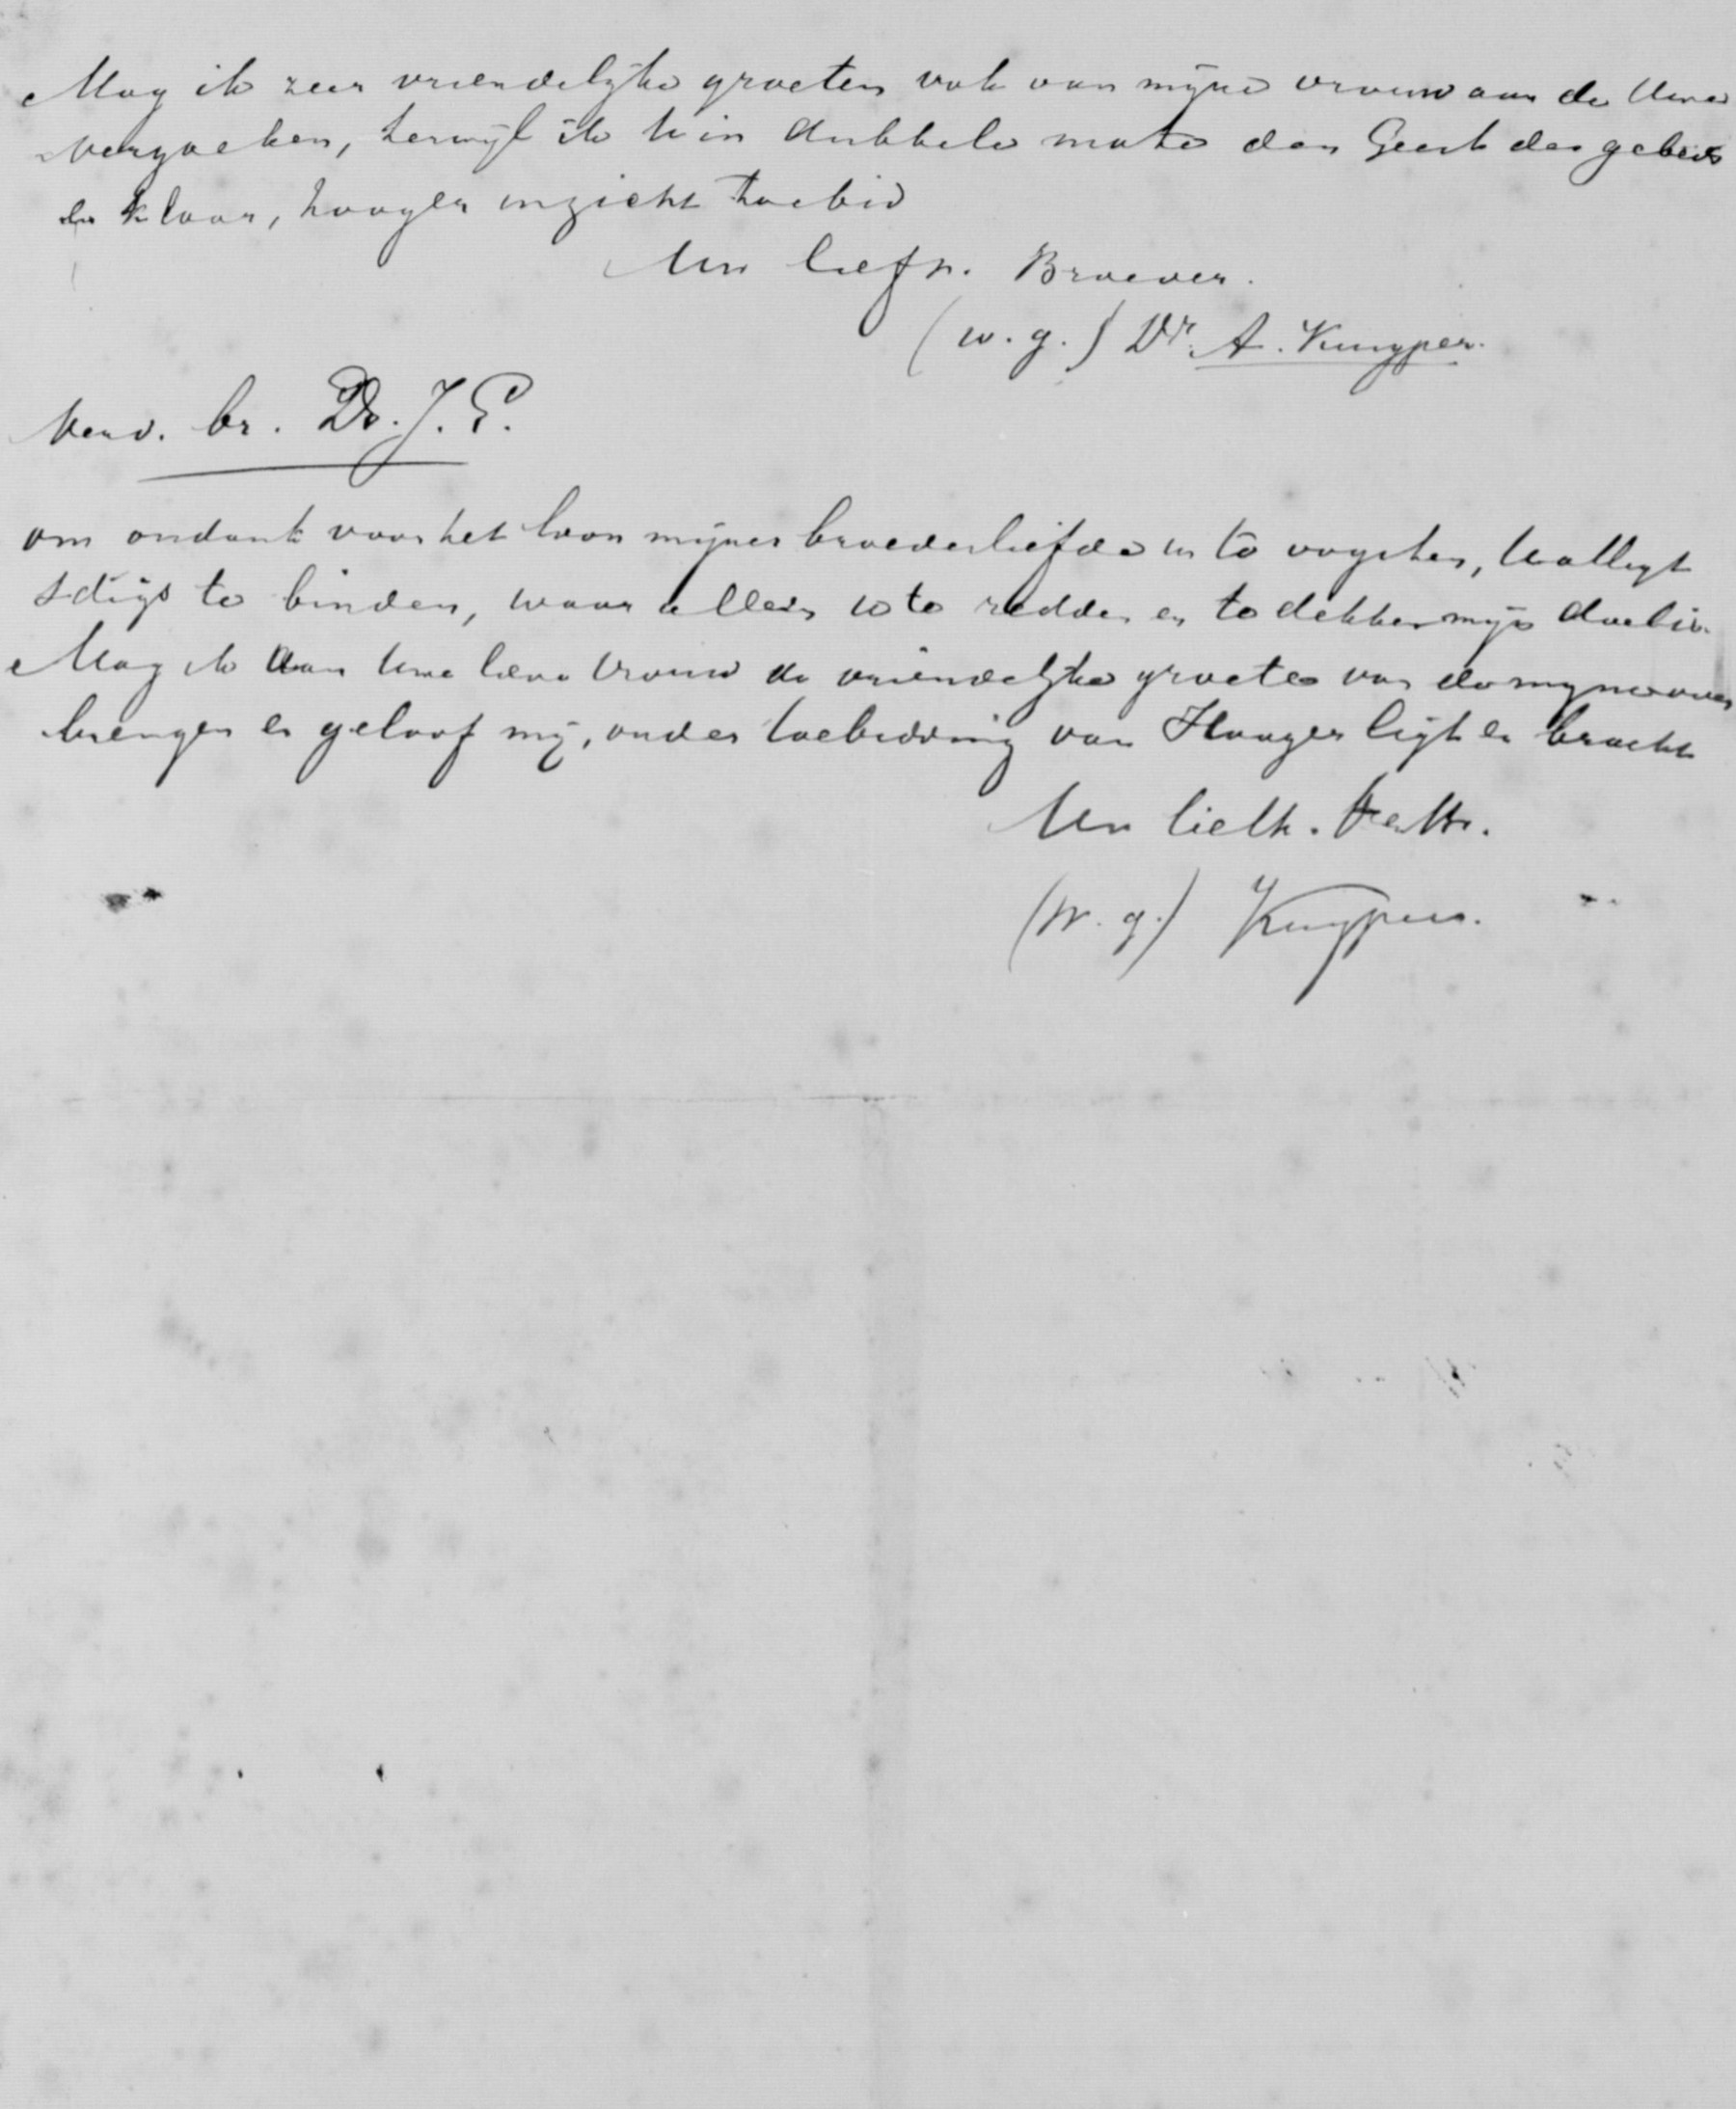 Mag ik zeer vriendelijke groeten ook van mijne vrouw aan de Uwe
verzoeken, terwijl ik U in dubbele mate den Geest des gebeds
en klaar, hooger inzicht toebid
Uw liefh. Broeder.
(w.g.) Dr. A. Kuyper.
Verv. br. Ds. J. E.
om ondank voor het loon mijner broederliefde in te oogsten,
te binden, waar alleen U te redden en te dekken mijn doel is.
Mag ik aan Uwe lieve vrouw de vriendelijke groeten van de mijne over
brengen en geloof mij, onder toebidding van Hooger licht en kracht
Uw liefh.
(w.g.) Kuyper.